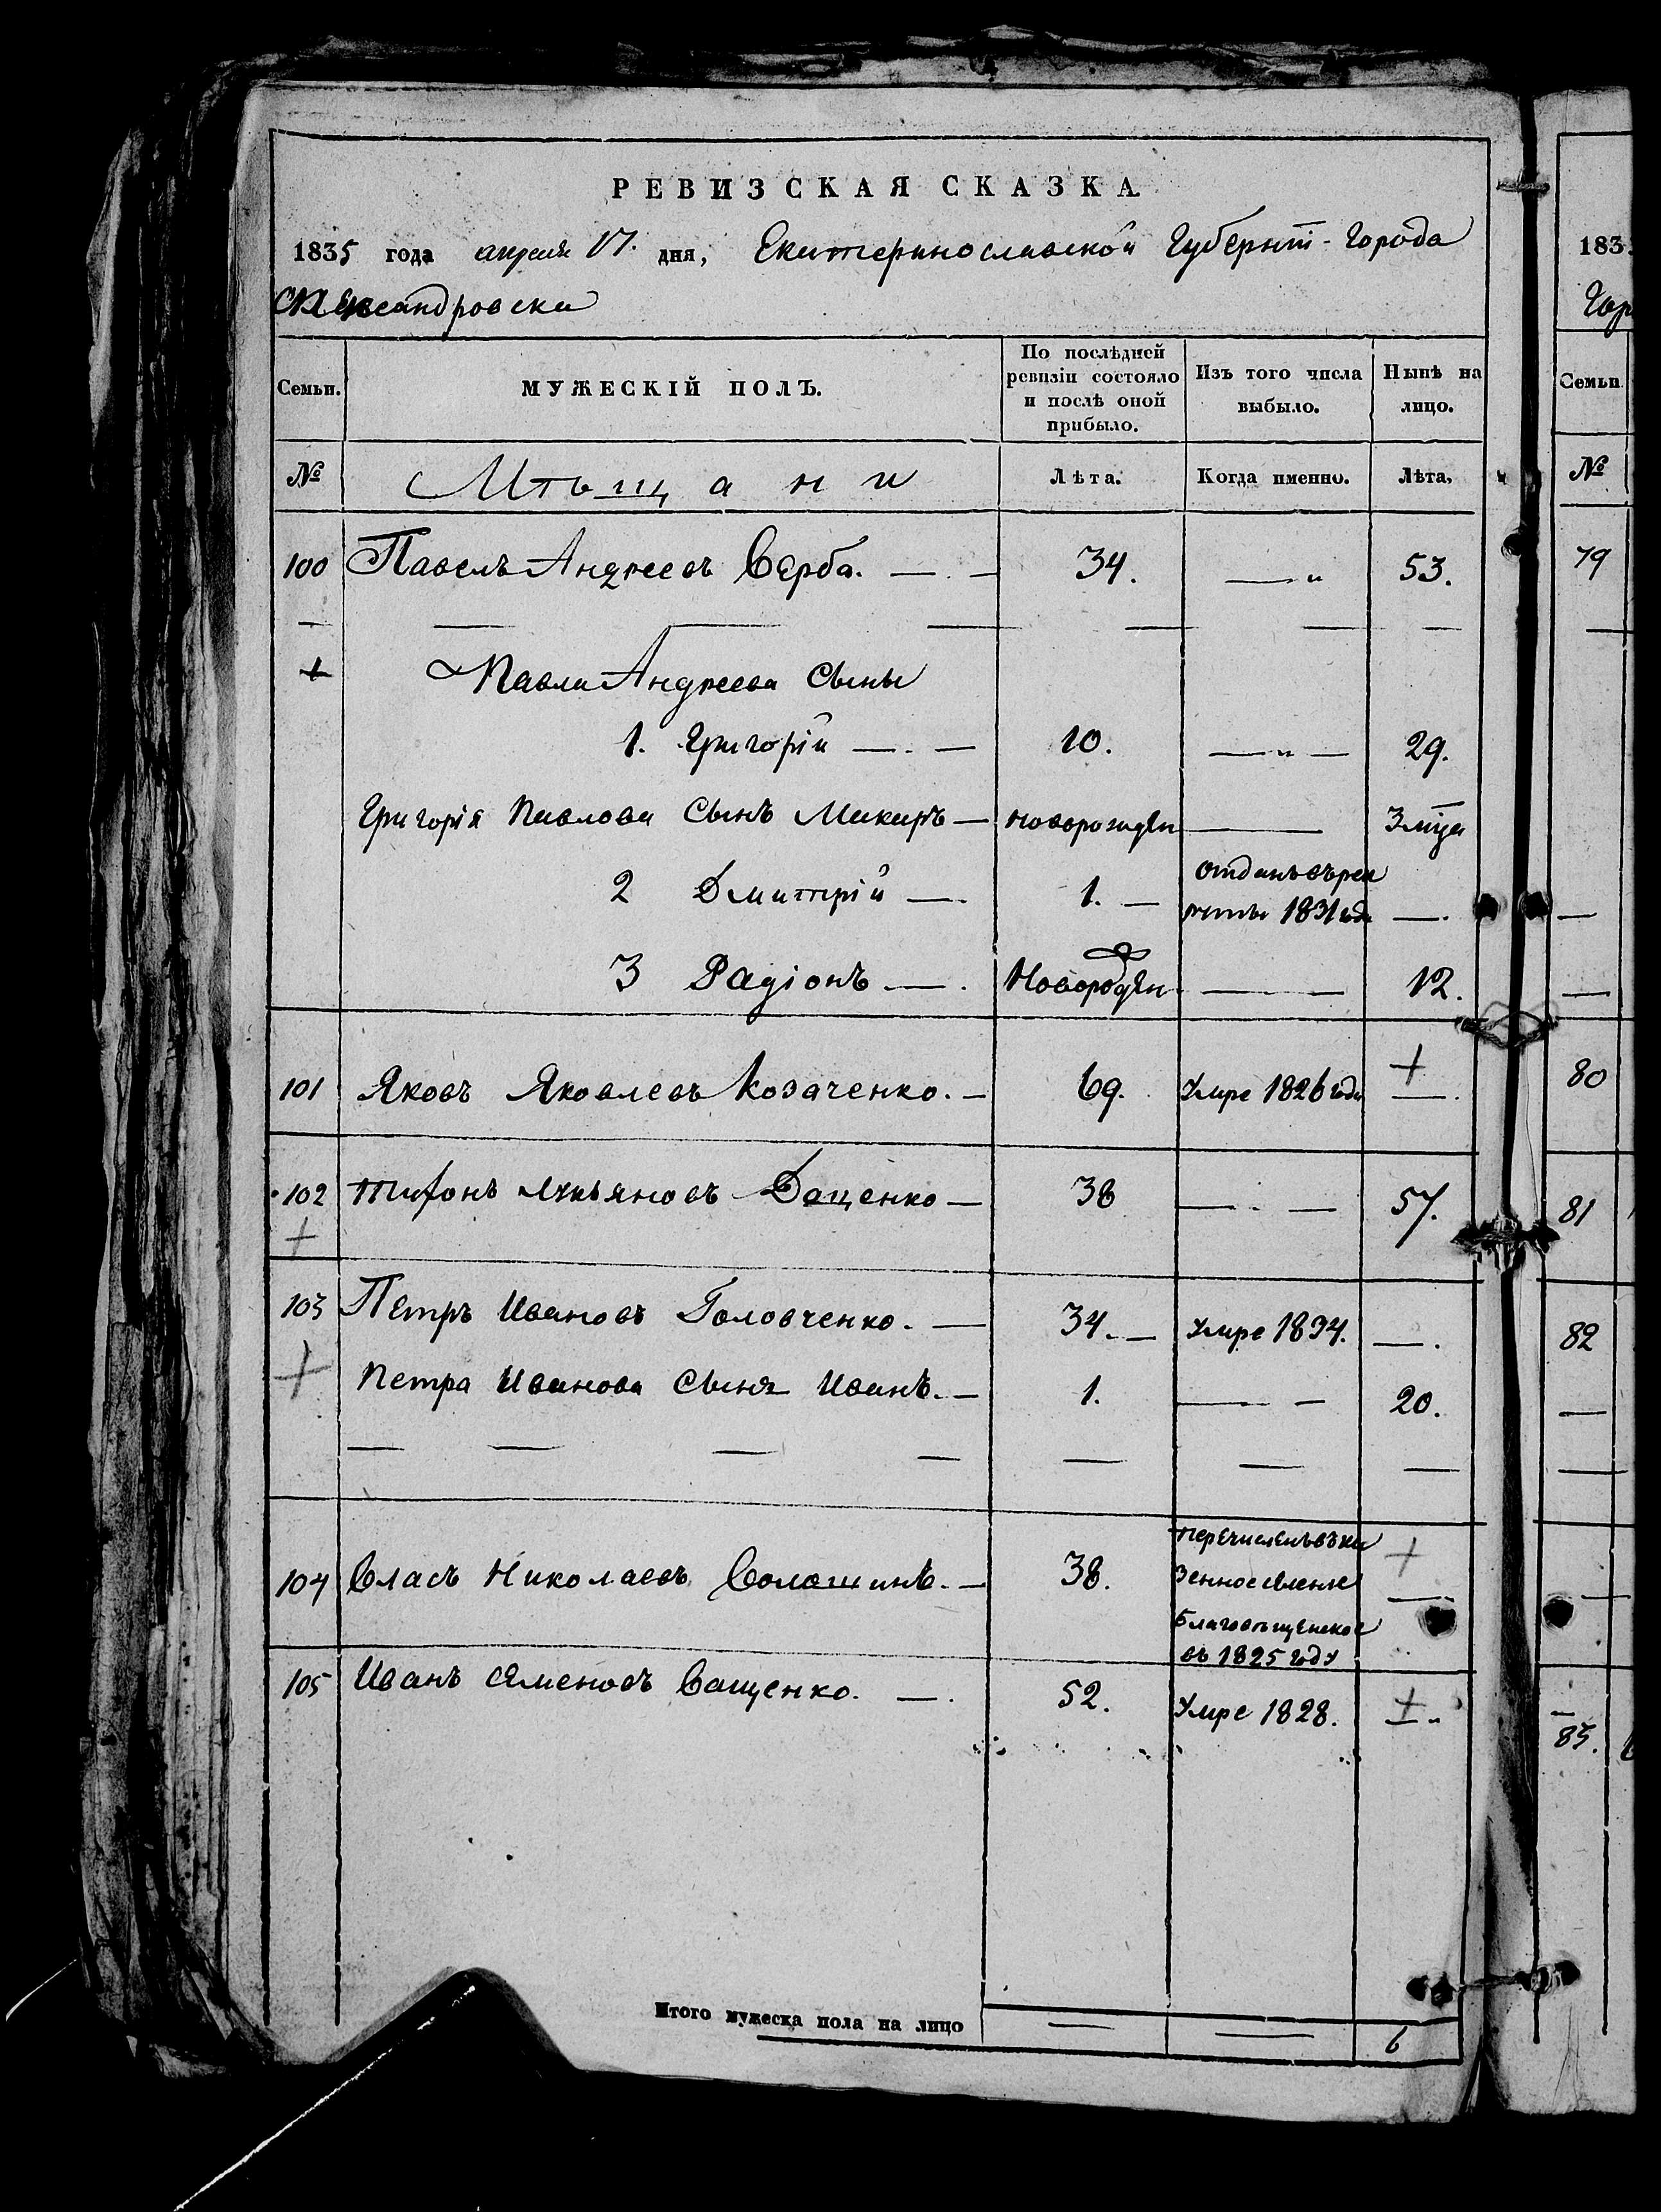 РЕВИЗСКАЯ СКАЗКА.
1835 года апреля 17. дня, Екатеринославской Губернїи Города
Александровска
Семьи. МУЖЕСКІЙ ПОЛЪ. По послѣдней ревизіи состояло и послѣ оной прибыло. Изъ того числа выбыло. Нынѣ на лицо.
№ Мѣщани Лѣта. Когда именно. Лѣта.
100 Павелъ Андреевъ Верба. 34. — 53.
Павла Андреева Сыны
1. Григорій 10. — 29.
Григорія Павлова Сынъ Макаръ новорожден — 3 мца
2 Дмитрій 1. Отданъ въ рекруты 1831 года —
3 Радіонъ Новорожден — 12.
101 Яковъ Яковлевъ Козаченко. 69. Умре 1826 года —
102 Тифонъ Лукьяновъ Доценко 38 — 57.
103 Петръ Ивановъ Головченко. 34. Умре 1834. —
Петра Иванова Сынъ Иванъ. 1. — 20.
104 Власъ Николаевъ Волошинъ. 38. перечисленъ въ казенное селение Благовѣщенское въ 1825 году —
105 Иванъ Семеновъ Ващенко. 52. Умре 1828. —
Итого мужеска пола на лицо — — 6
183
Гор
Семьи.
№
79
80
81
82
83.